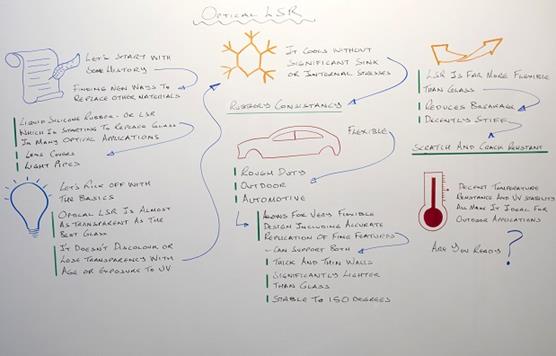 Optical LSR
Let's Start With
Some History
Finding New Ways To
Replace Other Materials
Liquid Silicone Rubber - Or LSR
Which Is Starting To Replace Glass
In Many Optical Applications
Lens Covers
Light Pipes
Let's Kick Off With
The Basics
Optical LSR Is Almost
As Transparent As The
Best Glass
It Doesn't Discolour Or
Lose Transparency With
Age Or Exposure To UV
It Cools Without
Significant Sink
Or Internal Stresses
Rubbery Consistancy
Flexible
Rough Duty
Outdoor
Automotive
Allows For Very Flexible
Design Including Accurate
Replication Of Fine Features
- Can Support Both
Thick And Thin Walls
Significantly Lighter
Than Glass
Stable To 150 Degrees
LSR Is Far More Flexible
Than Glass
Reduces Breakage
Decently Stiff
Scratch And Crack Resistant
Decent Temperature
Resistance And UV Stability
All Make It Ideal For
Outdoor Applications
Are You Ready ?